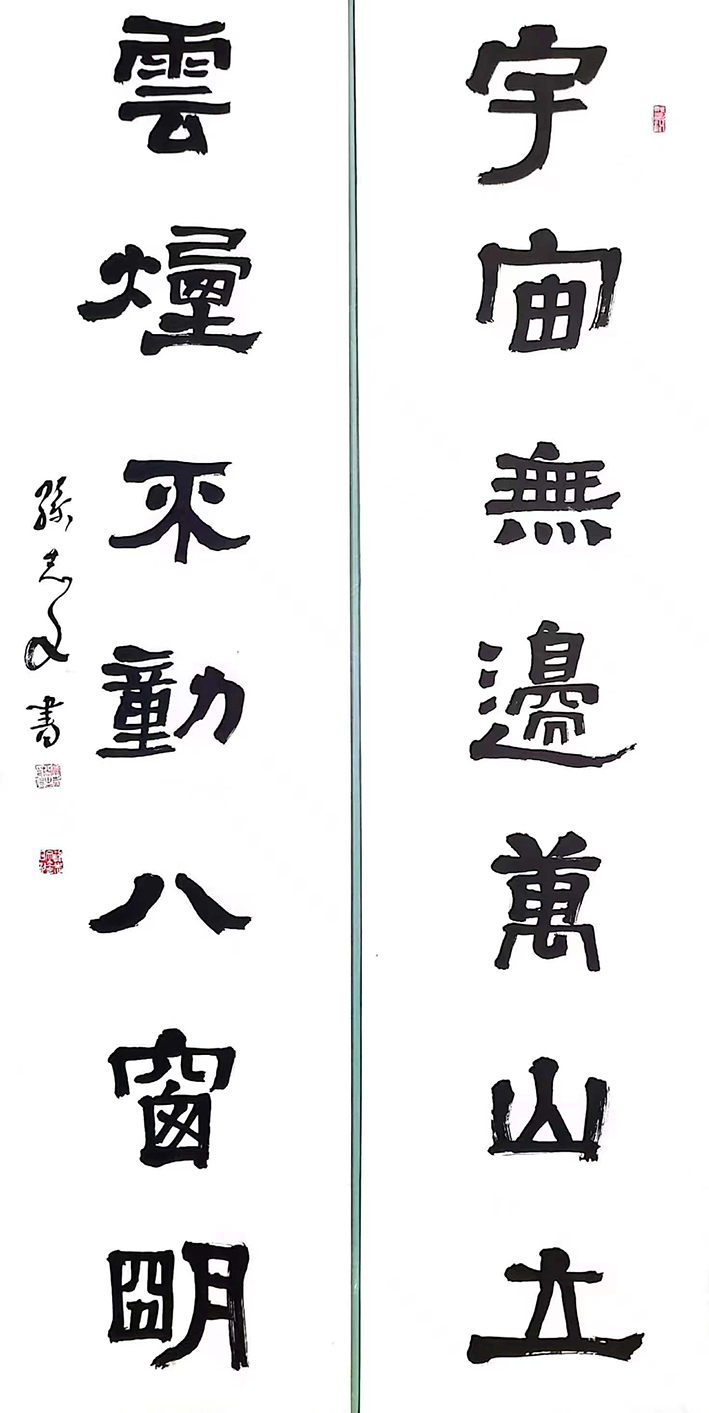 宇宙無邊萬山立
雲煙不動八窗明
孫志文書